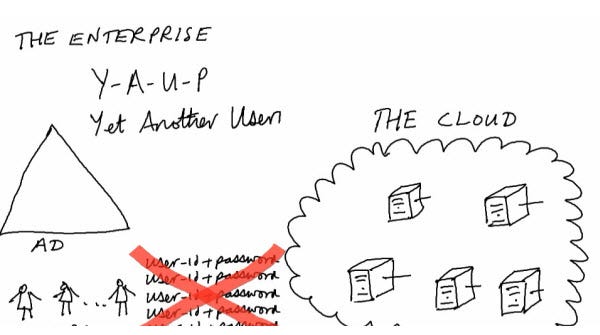 THE ENTERPRISE
Y-A-U-P
Yet Another User
THE CLOUD
AD
user-id + password
user-id + password
user-id + password
user-id + password